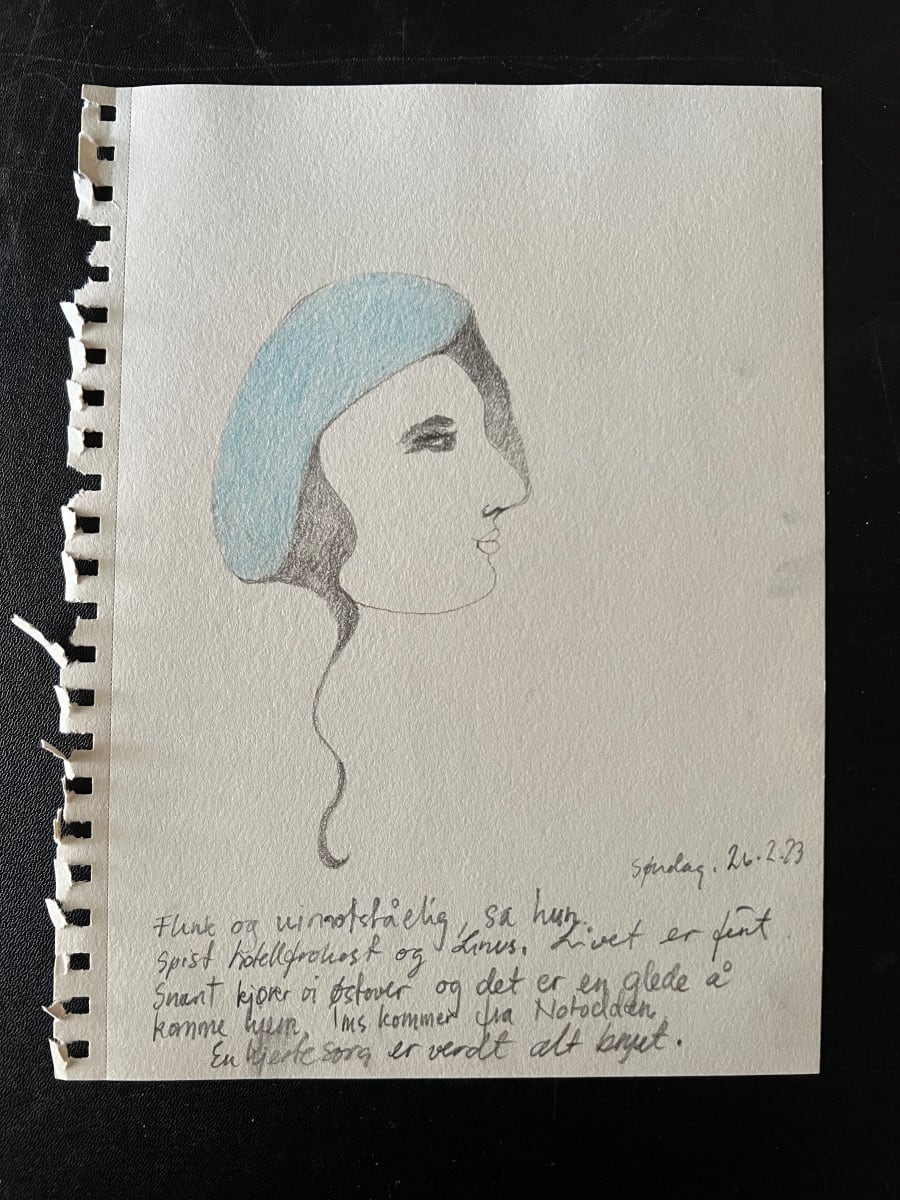 Søndag. 26.2.23
Flink og uimotståelig, sa hun.
Spist hotellfrokost og Linus. Livet er fint
Snart kjører vi østover og det er en glede å
komme hjem. kommer fra Notodden.
En hjertesorg er verdt alt